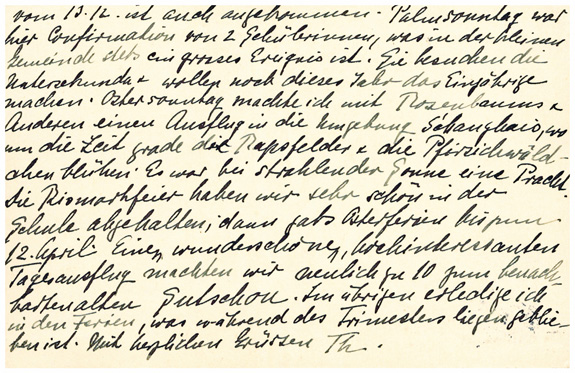 vom 13.12. ist auch angekommen. Palmsonntag war
hier Confirmation von 2 Schülerinnen, was in der kleinen
Gemeinde stets ein grosses Ereignis ist. Sie besuchen die
Untersekunda & wollen noch dieses Jahr das Einjährige
machen. Ostersonntag machte ich mit Rosenbaums &
Anderen einen Ausflug in die Umgebung Schanghais, wo
um die Zeit grade die Rapsfelder & die Pfirsichwäld-
chen blühen. Es war bei strahlender Sonne eine Pracht.
Die Bismarkfeier haben wir sehr schön in der
Schule abgehalten; dann gabs Osterferien bis zum
12. April. Einen wunderschönen, hochinteressanten
Tagesausflug machten wir neulich zu 10 zum benach-
barten alten Sutschou. Im übrigen erledige ich
in den Ferien, was während des Trimesters liegen geblie-
ben ist. Mit herzlichen Grüssen Th.